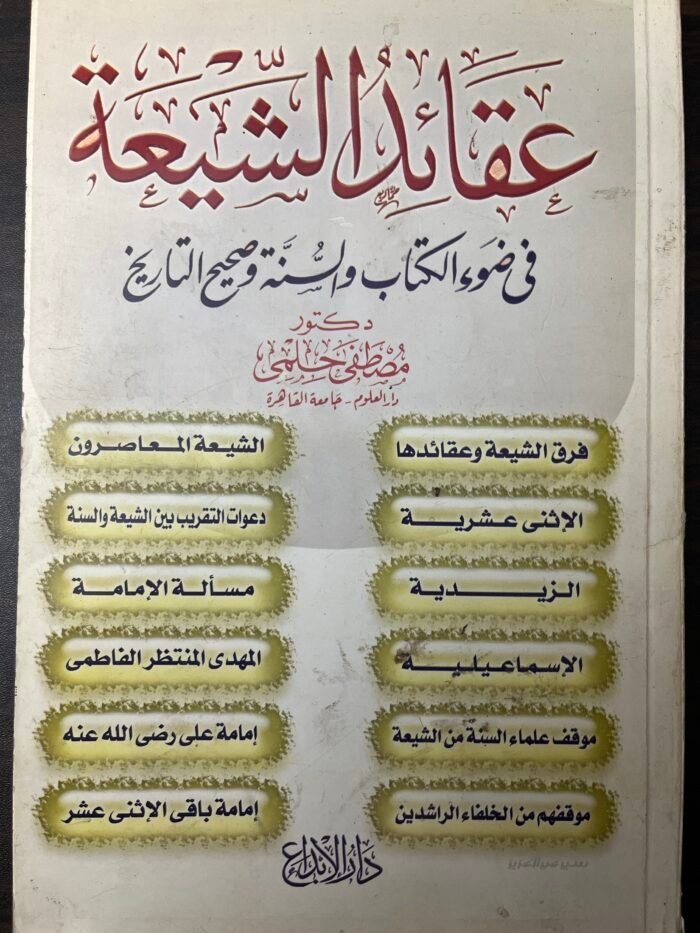 عقائد الشيعة
في ضوء الكتاب والسنة وصحيح التاريخ
دكتور
مصطفى حلمى
دار العلوم - جامعة القاهرة
فرق الشيعة وعقائدها
الإثنى عشرية
الزيدية
الإسماعيلية
موقف علماء السنة من الشيعة
موقفهم من الخلفاء الراشدين
الشيعة المعاصرون
دعوات التقريب بين الشيعة والسنة
مسألة الإمامة
المهدى المنتظر الفاطمى
إمامة على رضى الله عنه
إمامة باقى الإثنى عشر
دار الإبداع